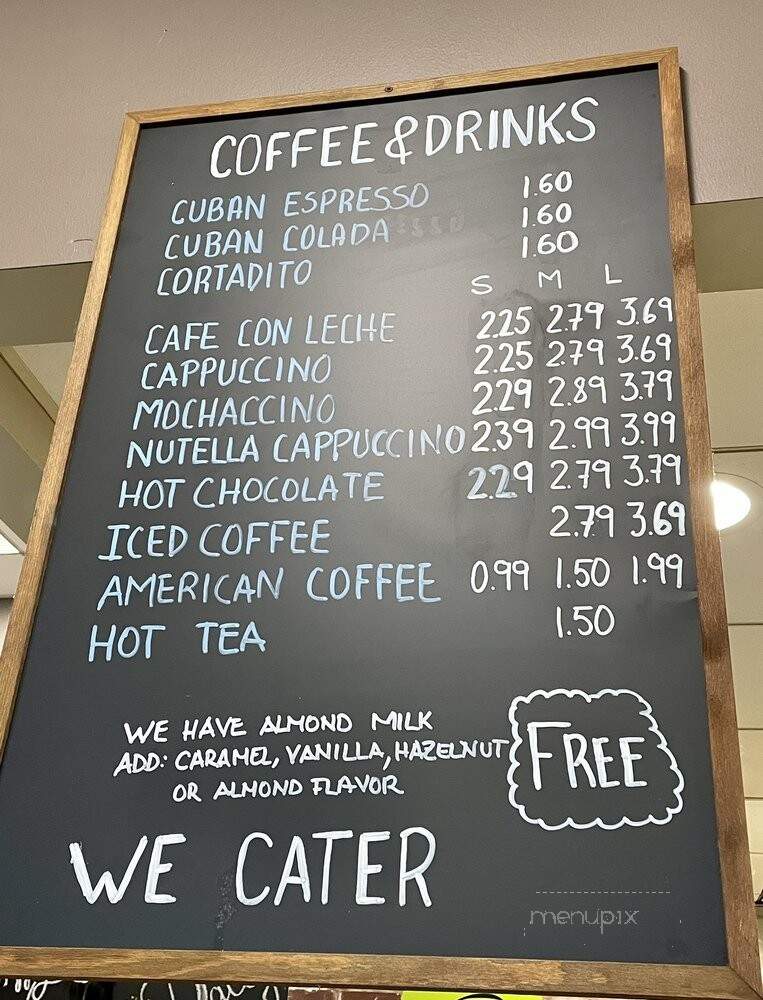 COFFEE & DRINKS
CUBAN ESPRESSO 1.60
CUBAN COLADA 1.60
CORTADITO 1.60
S M L
CAFE CON LECHE 2.25 2.79 3.69
CAPPUCCINO 2.25 2.79 3.69
MOCHACCINO 2.29 2.89 3.79
NUTELLA CAPPUCCINO 2.39 2.99 3.99
HOT CHOCOLATE 2.29 2.79 3.79
ICED COFFEE 2.79 3.69
AMERICAN COFFEE 0.99 1.50 1.99
HOT TEA 1.50
WE HAVE ALMOND MILK
ADD: CARAMEL, VANILLA, HAZELNUT
OR ALMOND FLAVOR
FREE
WE CATER
menupix